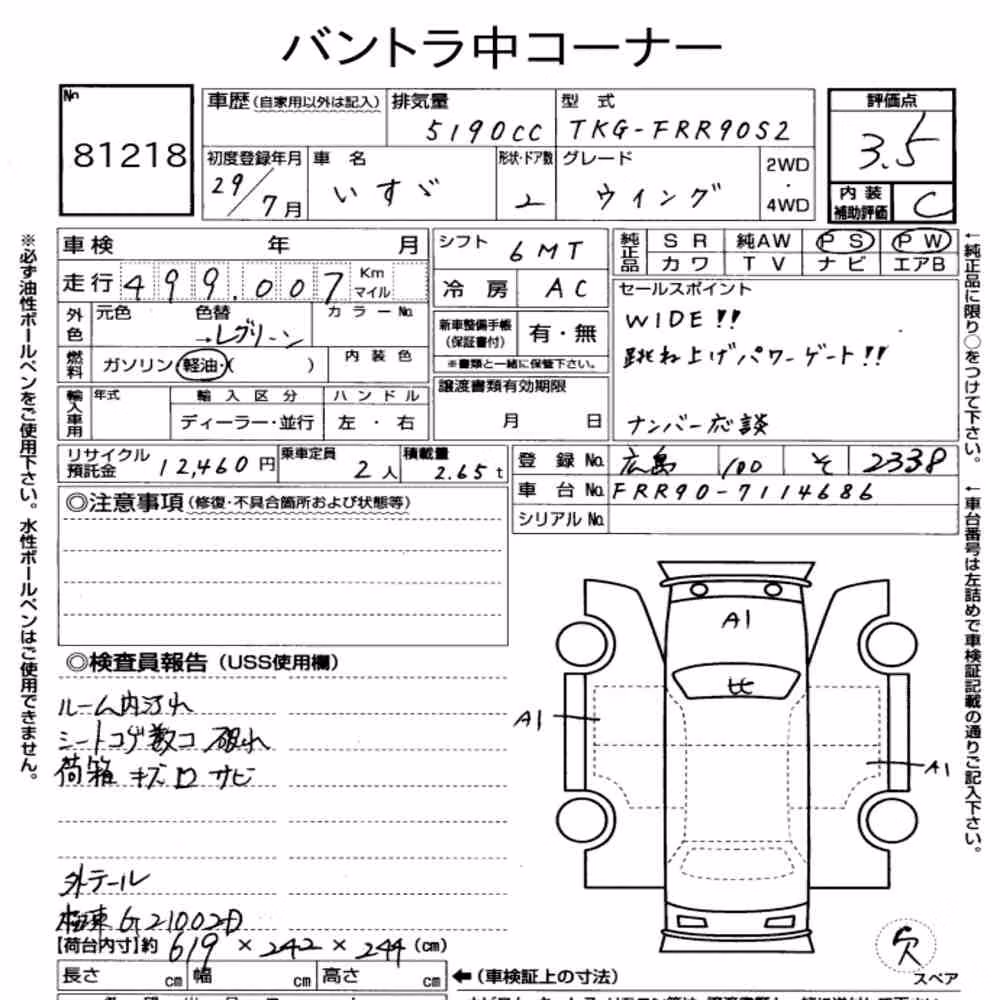 バントラ中コーナー
No 81218
車歴(自家用以外は記入) 排気量 5190cc 型式 TKG-FRR90S2 評価点 3.5
初度登録年月 29/7月 車名 いすゞ 形状・ドア数 2 グレード ウイング 2WD・4WD 内装補助評価 C
車検 年 月 シフト 6MT 純正品 SR 純AW PS PW
カワ TV ナビ エアB
走行 499.007 Km マイル 冷房 AC
セールスポイント
WIDE!!
跳ね上げパワーゲート!!
ナンバー応談
外色 元色 色替 →レグリーン カラーNo.
新車整備手帳(保証書付) 有・無
※書類と一緒に保管下さい。
燃料 ガソリン・軽油・( ) 内装色
譲渡書類有効期限
月 日
輸入車用 年式 輸入区分 ハンドル
ディーラー・並行 左・右
リサイクル預託金 12,460円 乗車定員 2人 積載量 2.65t
登録No. 広島 100 そ 2338
車台No. FRR90-7114686
シリアルNo.
◎注意事項(修復・不具合箇所および状態等)
◎検査員報告(USS使用欄)
ルーム内汚れ
シートコゲ数コ 破れ
荷箱 キズ ロ サビ
外テール
G21002D
【荷台内寸】約 619 × 242 × 244 (cm)
長さ cm 幅 cm 高さ cm
←(車検証上の寸法)
A1
A1
A1
欠
スペア
※必ず油性ボールペンをご使用下さい。水性ボールペンはご使用できません。
←純正品に限り○をつけて下さい。
←車台番号は左詰めで車検証記載の通りご記入下さい。